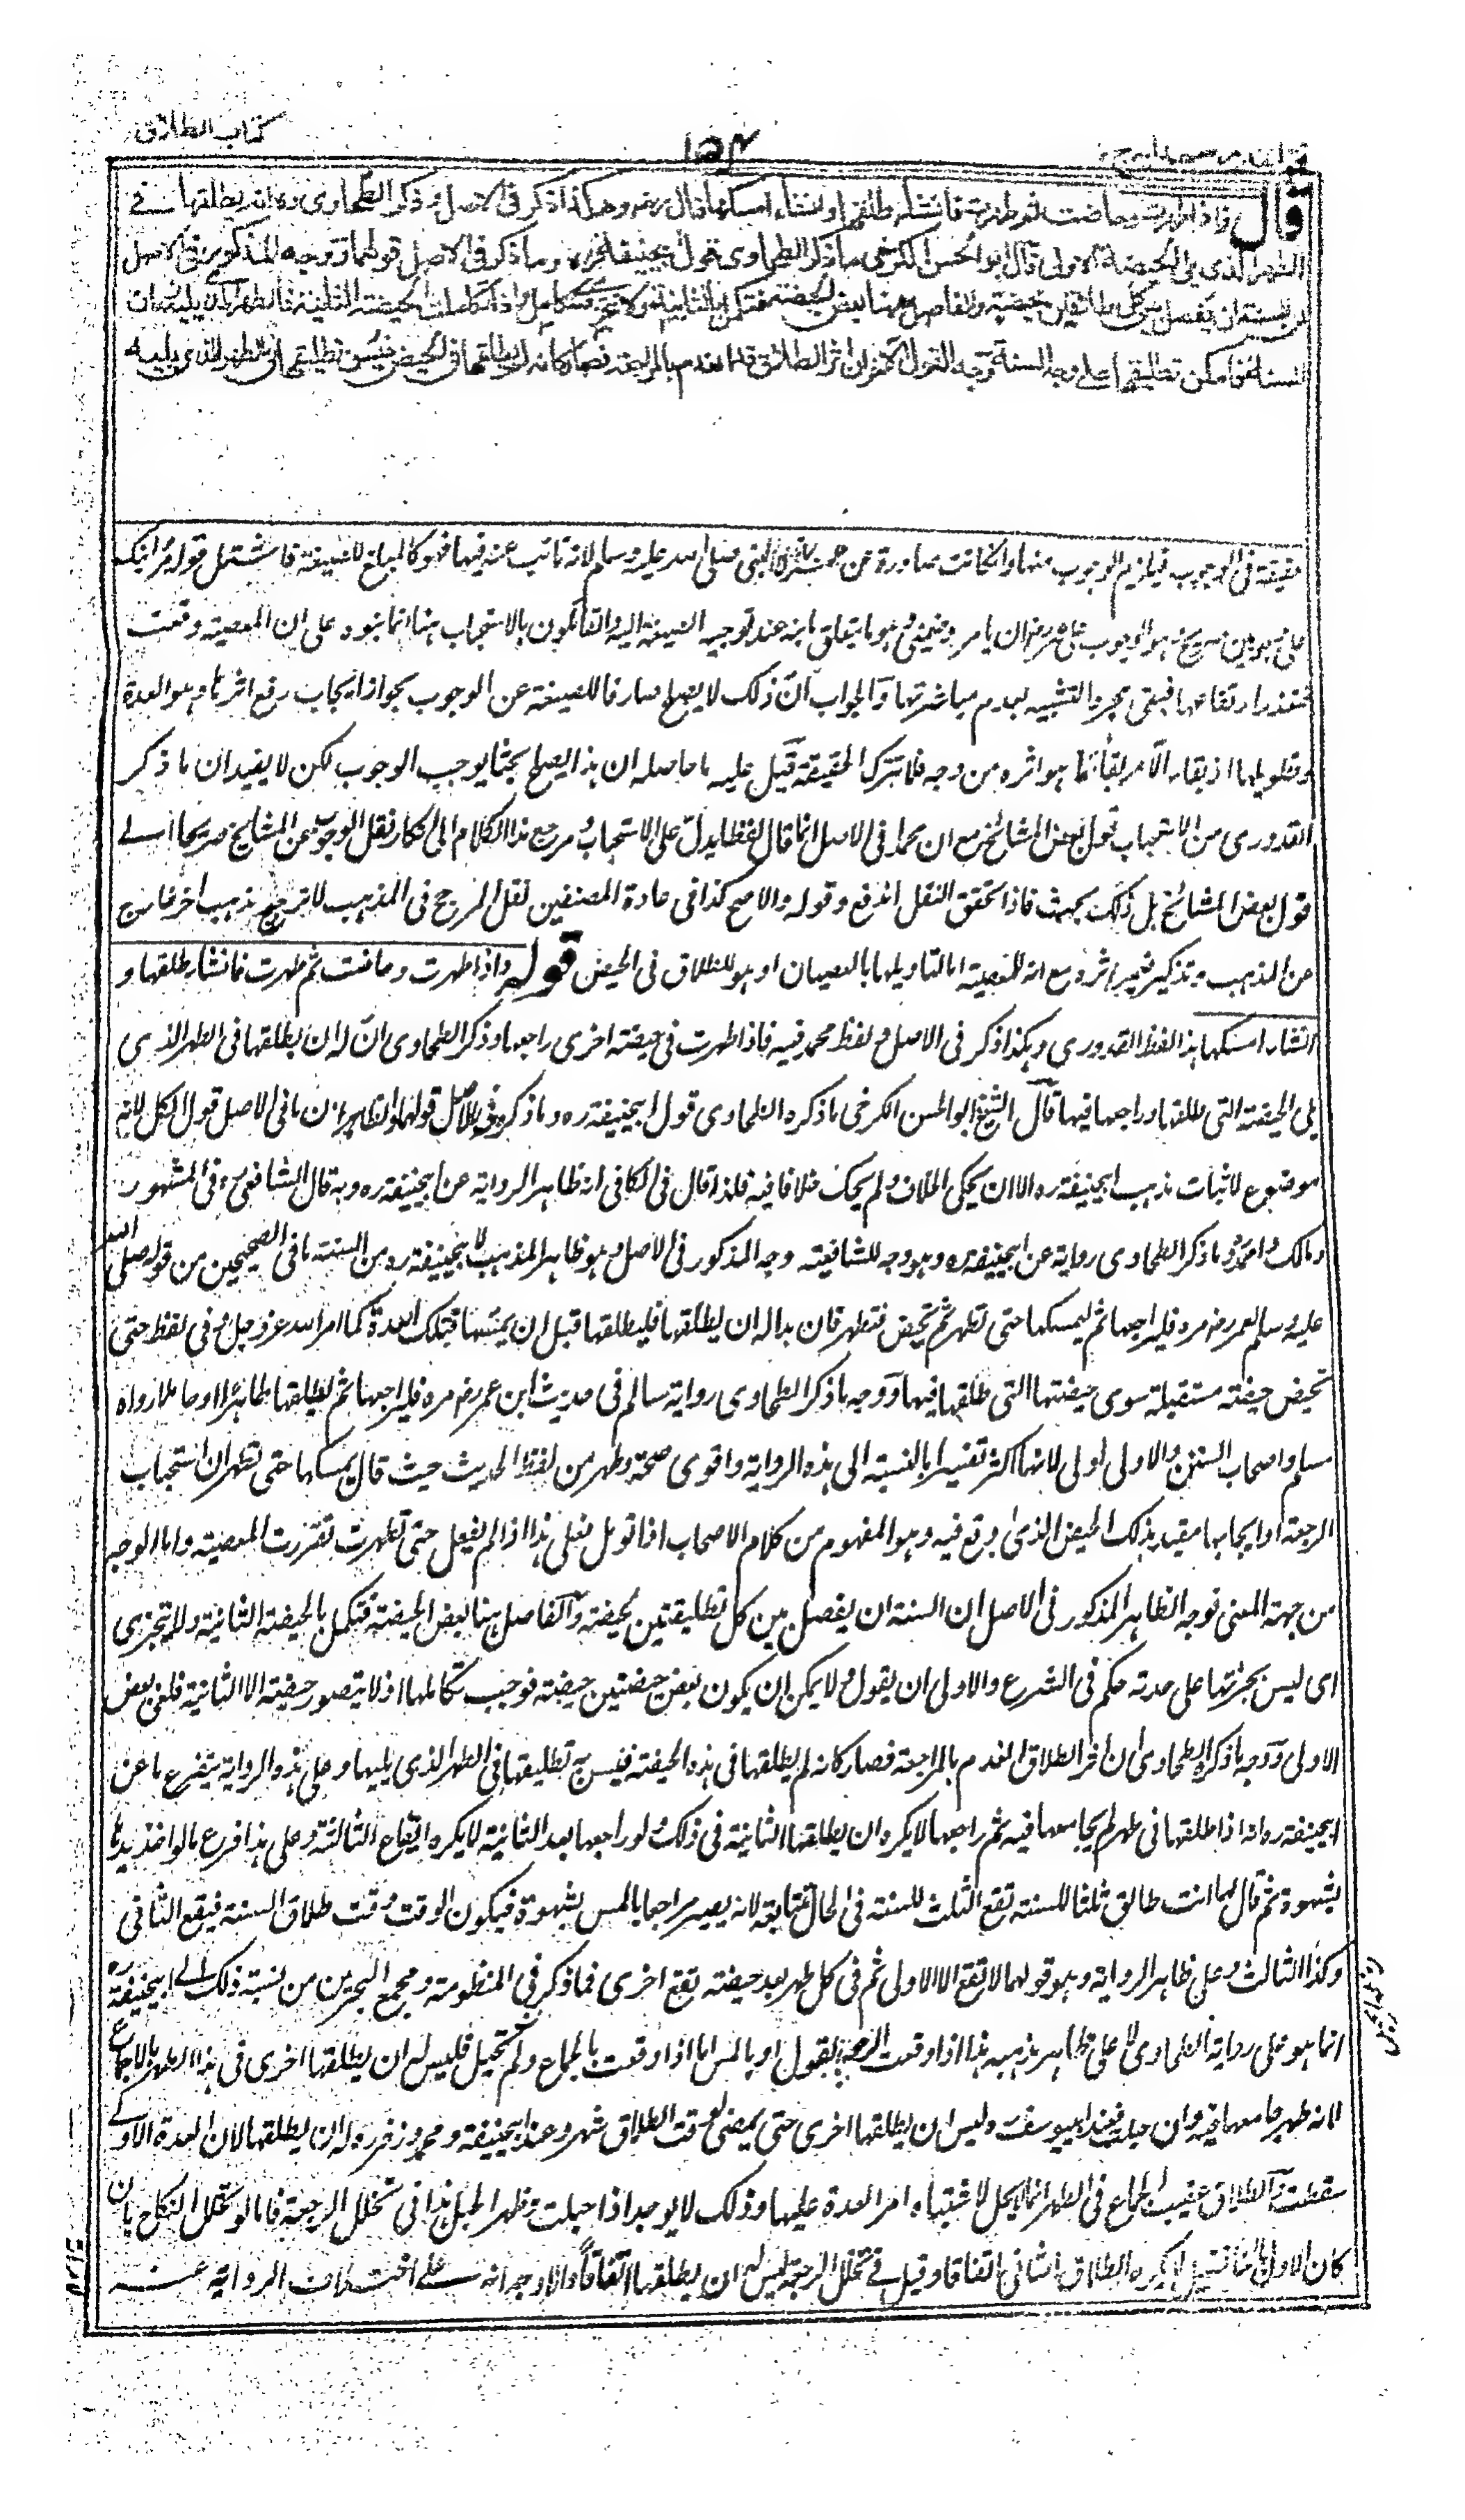 كتاب الطلاق
١٥٤
قال واذا طهرت وحاضت ثم طهرت فان شاء طلقها وان شاء امسكها قال رضه وهكذا ذكر فى الاصل وذكر الطحاوى ره انه يطلقها فے
الطهر الذى يلى الحيضة الاولى قال ابو الحسن الكرخى ما ذكر الطحاوى قول ابيحنيفة ره وما ذكر فى الاصل قولهما ووجه المذكور فى الاصل
ان السنة ان يفصل بين كل طلاقين بحيضة والفاصل ههنا بعض الحيضة فتكمل بالثانية ولا تتجزى فتتكامل واذا تكاملت الحيضة الثانية فالطهر الذى يليه زمان
السنة فامكن تطليقها على وجه السنة وجه القول الآخر ان اثر الطلاق قد انعدم بالمراجعة فصار كانه لم يطلقها فى الحيض فيسن تطليقها فى الطهر الذى يليه
حقيقة فى الوجوب فيلزم الوجوب منها وان كانت صادرة عن عمر رضه لا النبى صلى الله عليه وسلم لانه نائب عنه فيها فهو كالمبلغ للصيغة فاشتمل قوله مر ابنك
على وجوبين صريح وهو الوجوب على عمر رضه ان يامر وضمنى وهو ما يتعلق بابنه عند توجيه الصيغة اليه والقائلون بالاستحباب هنا انما بنوه على ان المعصية وقعت
فتعذر ارتفاعها فبقى مجرد التشبيه بعدم مباشرتها والجواب ان ذلك لا يصلح صارفا للصيغة عن الوجوب بجواز ايجاب رفع اثرها وهو العدة
وتطويلها اذ بقاء الامر بقاء ما هو اثره من وجه فلا تترك الحقيقة قيل عليه ما حاصله ان هذا يصلح بحثا يوجب الوجوب لكن لا يفيد ان ما ذكر
القدورى من الاستحباب قول بعض المشائخ مع ان محمدا فى الاصل انما قال لفظا يدل على الاستحباب ومرجع هذا الكلام الى انكار نقل الوجوب عن المشايخ صريحا اے
قول بعض المشائخ بل ذلك بحث فاذا تحقق النقل اندفع وقوله والاصح كذا فى عادة المصنفين نقل المرجح فى المذهب لا ترجيح مذهب آخر خارج
عن المذهب وتذكير ضمير اثره مع انه للمعصية اما لتاويلها بالعصيان او هو للطلاق فى الحيض قوله واذا طهرت وحاضت ثم طهرت فان شاء طلقها و
ان شاء امسكها هذا لفظ القدورى وهكذا ذكر فى الاصل ولفظ محمد فيه فاذا طهرت فى حيضة اخرى راجعها وذكر الطحاوى ان له ان يطلقها فى الطهر الذى
يلى الحيضة التى طلقها وراجعها فيها قال الشيخ ابو الحسن الكرخى ما ذكره الطحاوى قول ابيحنيفة ره وما ذكره فى الاصل قولهما والظاهر ان ما فى الاصل قول الكل لانه
موضوع لاثبات مذهب ابيحنيفة ره الا ان يحكى الخلاف ولم يحك خلافا فيه فلذا قال فى الكافى انه ظاهر الرواية عن ابيحنيفة ره وبه قال الشافعى ره فى المشهور
ومالك واحمد وما ذكر الطحاوى رواية عن ابيحنيفة ره وهو وجه للشافعية وجه المذكور فى الاصل وهو ظاهر المذهب لابيحنيفة ره من السنة ما فى الصحيحين من قوله صلى الله
عليه وسلم لعمر رضه مره فليراجعها ثم ليمسكها حتى تطهر ثم تحيض فتطهر فان بدا له ان يطلقها فليطلقها قبل ان يمسها فتلك العدة كما امر الله عز وجل وفى لفظ حتى
تحيض حيضة مستقبلة سوى حيضتها التى طلقها فيها ووجه ما ذكر الطحاوى رواية سالم فى حديث ابن عمر رضه مره فليراجعها ثم ليطلقها طاهرا او حاملا رواه
مسلم واصحاب السنن والاولى اولى لانها اكثر تفسيرا بالنسبة الى هذه الرواية واقوى صحة وظهر من لفظ الحديث حيث قال يمسكها حتى تطهر ان استحباب
الرجعة او ايجابها مقيد بذلك الحيض الذى اوقع فيه وهو المفهوم من كلام الاصحاب اذا تومل فعلى هذا اذا لم يفعل حتى تطهرت تقررت المعصية واما الوجه
من جهة المعنى فوجه الظاهر المذكور فى الاصل ان السنة ان يفصل بين كل تطليقتين بحيضة والفاصل هنا بعض الحيضة فتكمل بالحيضة الثانية ولا تتجزى
اى ليس بجزئها على حدته حكم فى الشرع والاولى ان يقول ولا يمكن ان يكون بعض حيضتين حيضة فوجب تكاملها اذ لا يتصور حيضة الا الثانية فلغى بعض
الاولى ووجه ما ذكره الطحاوى ان اثر الطلاق انعدم بالمراجعة فصار كانه لم يطلقها فى هذه الحيضة فيسن تطليقها فى الطهر الذى يليها وعلى هذه الرواية يتفرع ما عن
ابيحنيفة ره انه اذا طلقها فى طهر لم يجامعها فيه ثم راجعها لا يكره ان يطلقها الثانية فى ذلك ولو راجعها بعد الثانية لا يكره ايقاع الثالثة وعلى هذا فرع ما لو اخذ يدها
بشهوة ثم قال لها انت طالق ثلثا للسنة تقع الثلث للسنة فى الحال متتابعة لانه يصير مراجعا بالمس بشهوة فيكون الوقت وقت طلاق السنة فيقع الثانى
وكذا الثالث وعلى ظاهر الرواية وهو قولهما لا تقع الا الاولى ثم فى كل طهر بعد حيضة تقع اخرى فما ذكر فى المنظومة ومجمع البحرين من نسبة ذلك الے ابيحنيفة ره
انما هو على رواية الطحاوى لا على ظاهر مذهبه هذا اذا وقعت الرجعة بالقول او بالمس اما اذا وقعت بالجماع ولم تحبل فليس له ان يطلقها اخرى فى هذا الطهر بالاجماع
لانه طهر جامعها فيه وان حبلت فعند ابيوسف وليس ان يطلقها اخرى حتى يمضى لوقت الطلاق شهر وعند ابيحنيفة ومحمد وزفر ره له ان يطلقها لان العدة الاولے
سقطت والطلاق عقيب الجماع فى الطهر انما لا يحل لاشتباه امر العدة عليها وذلك لا يوجد اذا حبلت وظهر الحبل هذا فى تخلل الرجعة فاما لو تخلل النكاح بان
كان الاول بائنا لا يكره الطلاق الثانى اتفاقا وقيل فے تخلل الرجعة ليس له ان يطلقها اتفاقا والاوجه انه علے اختلاف الرواية عنه